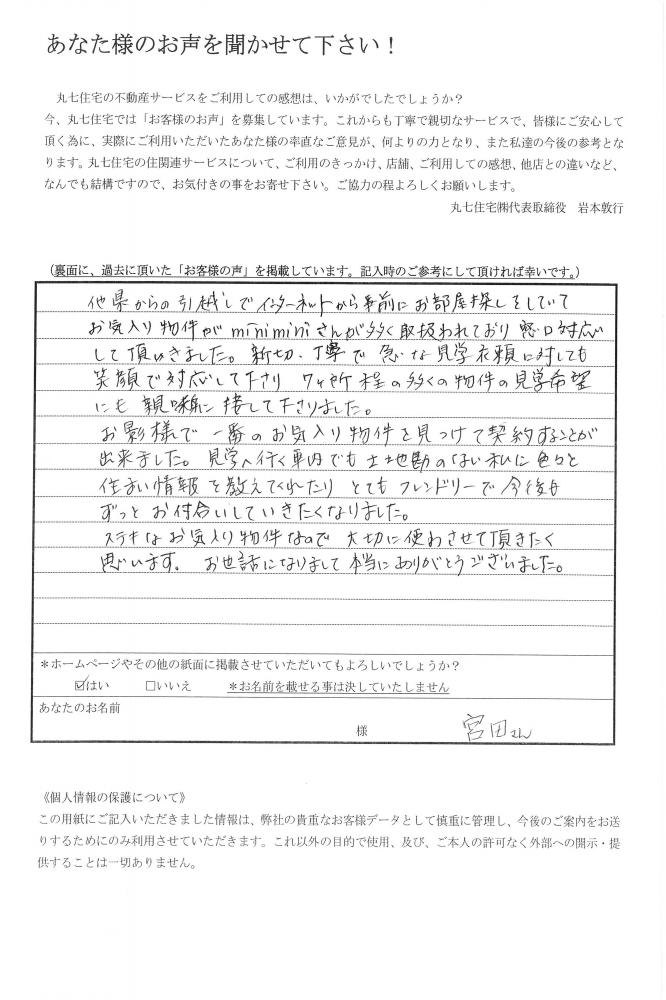 あなた様のお声を聞かせて下さい！
丸七住宅の不動産サービスをご利用しての感想は、いかがでしたでしょうか？
今、丸七住宅では「お客様のお声」を募集しています。これからも丁寧で親切なサービスで、皆様にご安心して
頂く為に、実際にご利用いただいたあなた様の率直なご意見が、何よりの力となり、また私達の今後の参考とな
ります。丸七住宅の住関連サービスについて、ご利用のきっかけ、店舗、ご利用しての感想、他店との違いなど、
なんでも結構ですので、お気付きの事をお寄せ下さい。ご協力の程よろしくお願いします。
丸七住宅㈱代表取締役　岩本敦行
（裏面に、過去に頂いた「お客様の声」を掲載しています。記入時のご参考にして頂ければ幸いです。）
他県からの引越しでインターネットから事前にお部屋探しをしていて
お気入り物件がminiminiさんが多く取扱われており窓口対応
して頂いきました。親切、丁寧で急な見学依頼に対しても
笑顔で対応して下さり 7ヶ所程の多くの物件の見学希望
にも親味に接して下さりました。
お影様で一番のお気入り物件を見つけて契約することが
出来ました。見学へ行く車内でも土地勘のない私に色々と
住まい情報を教えてくれたり とてもフレンドリーで今後も
ずっとお付合いしていきたくなりました。
ステキなお気入り物件なので 大切に使わさせて頂きたく
思います。お世話になりまして本当にありがとうございました。
＊ホームページやその他の紙面に掲載させていただいてもよろしいでしょうか？
☑はい　□いいえ　＊お名前を載せる事は決していたしません
あなたのお名前
様　宮田さん
《個人情報の保護について》
この用紙にご記入いただきました情報は、弊社の貴重なお客様データとして慎重に管理し、今後のご案内をお送
りするためにのみ利用させていただきます。これ以外の目的で使用、及び、ご本人の許可なく外部への開示・提
供することは一切ありません。